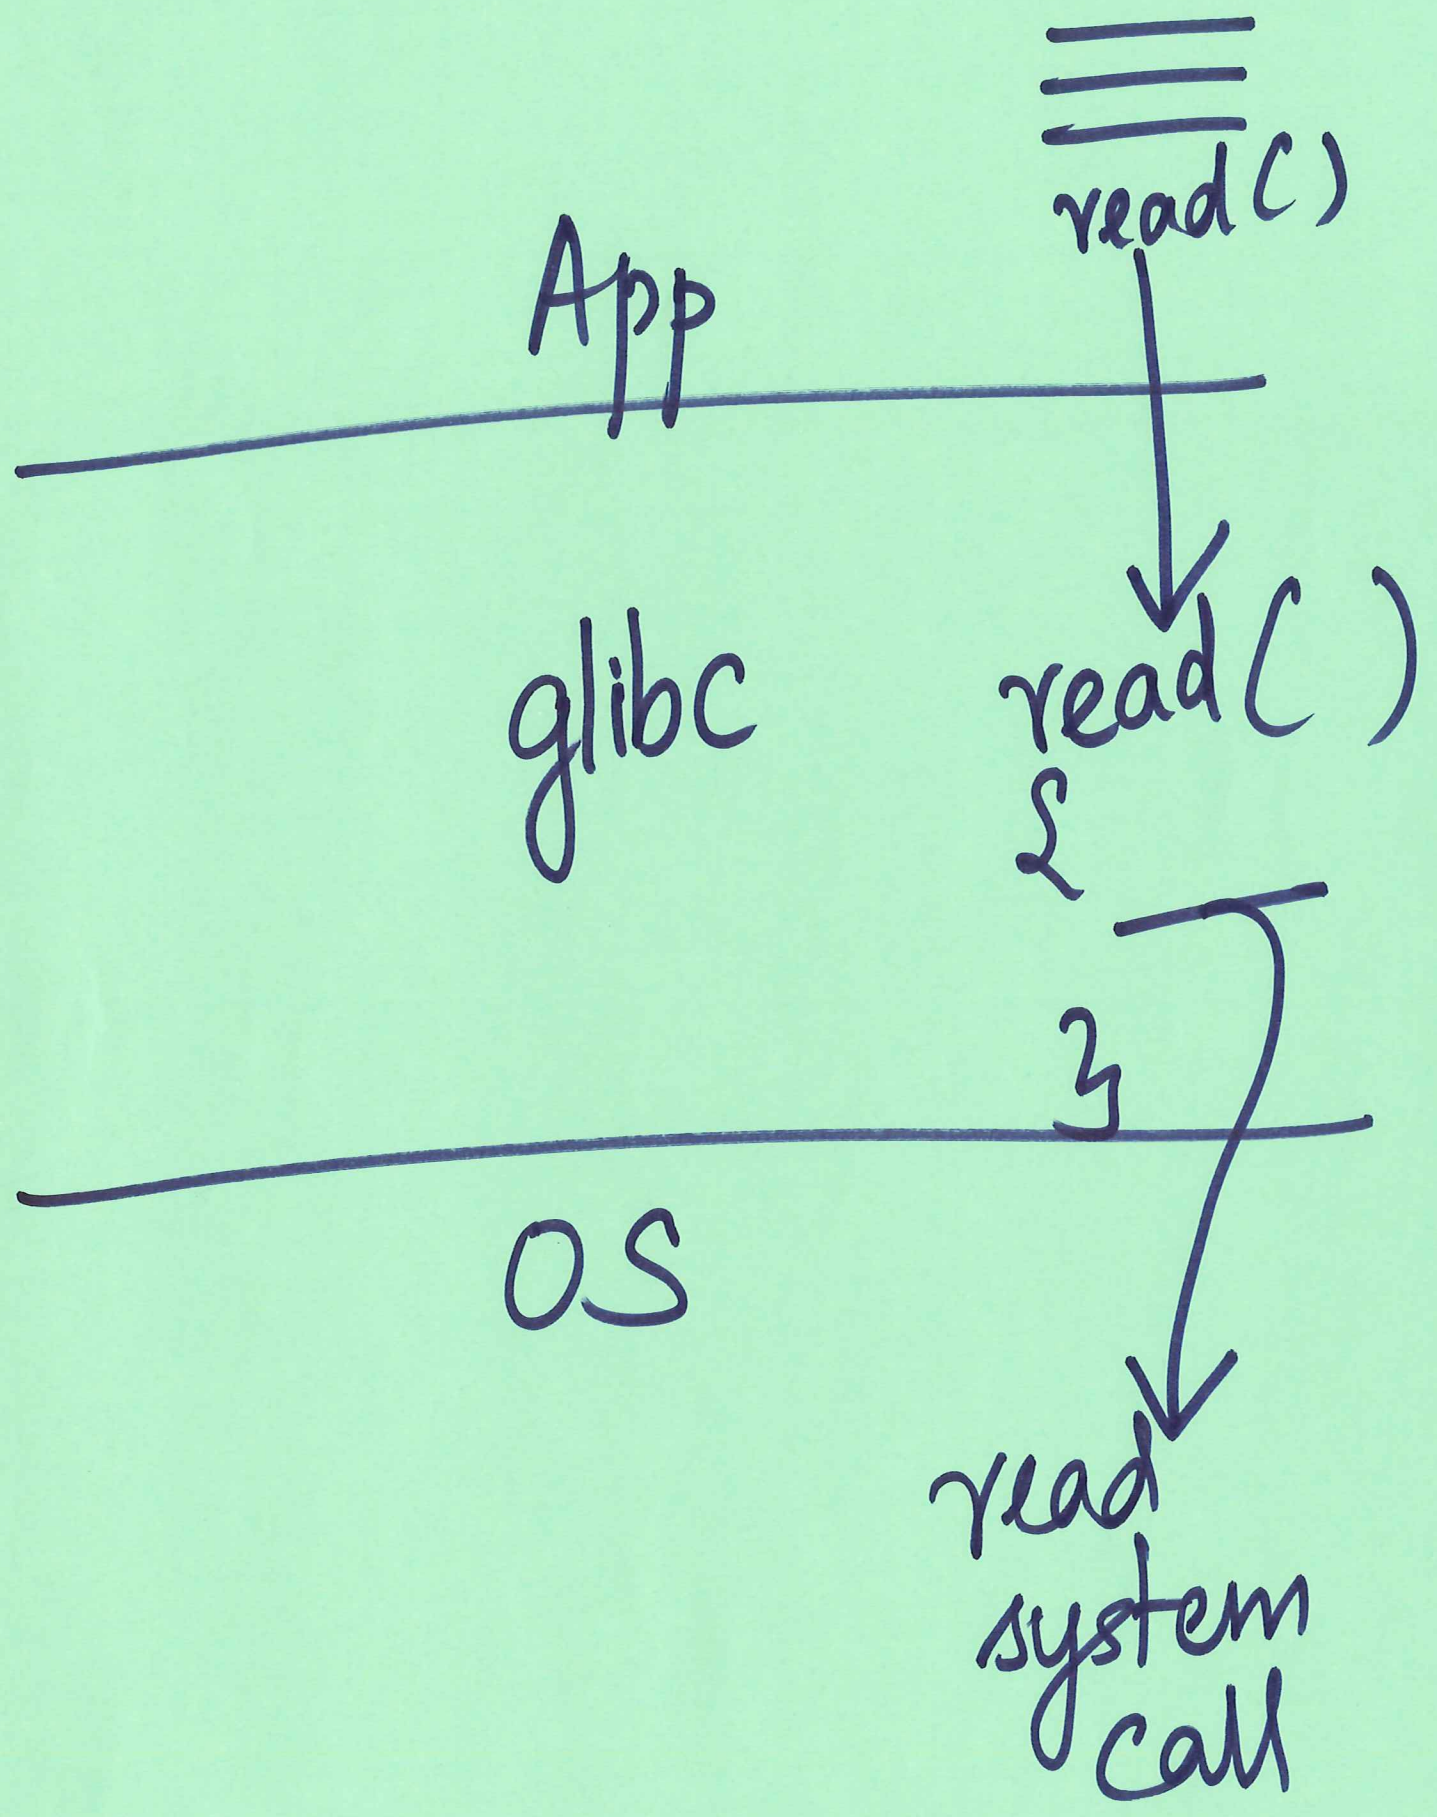 read()
App
glibc
read()
{
}
OS
read
system
call